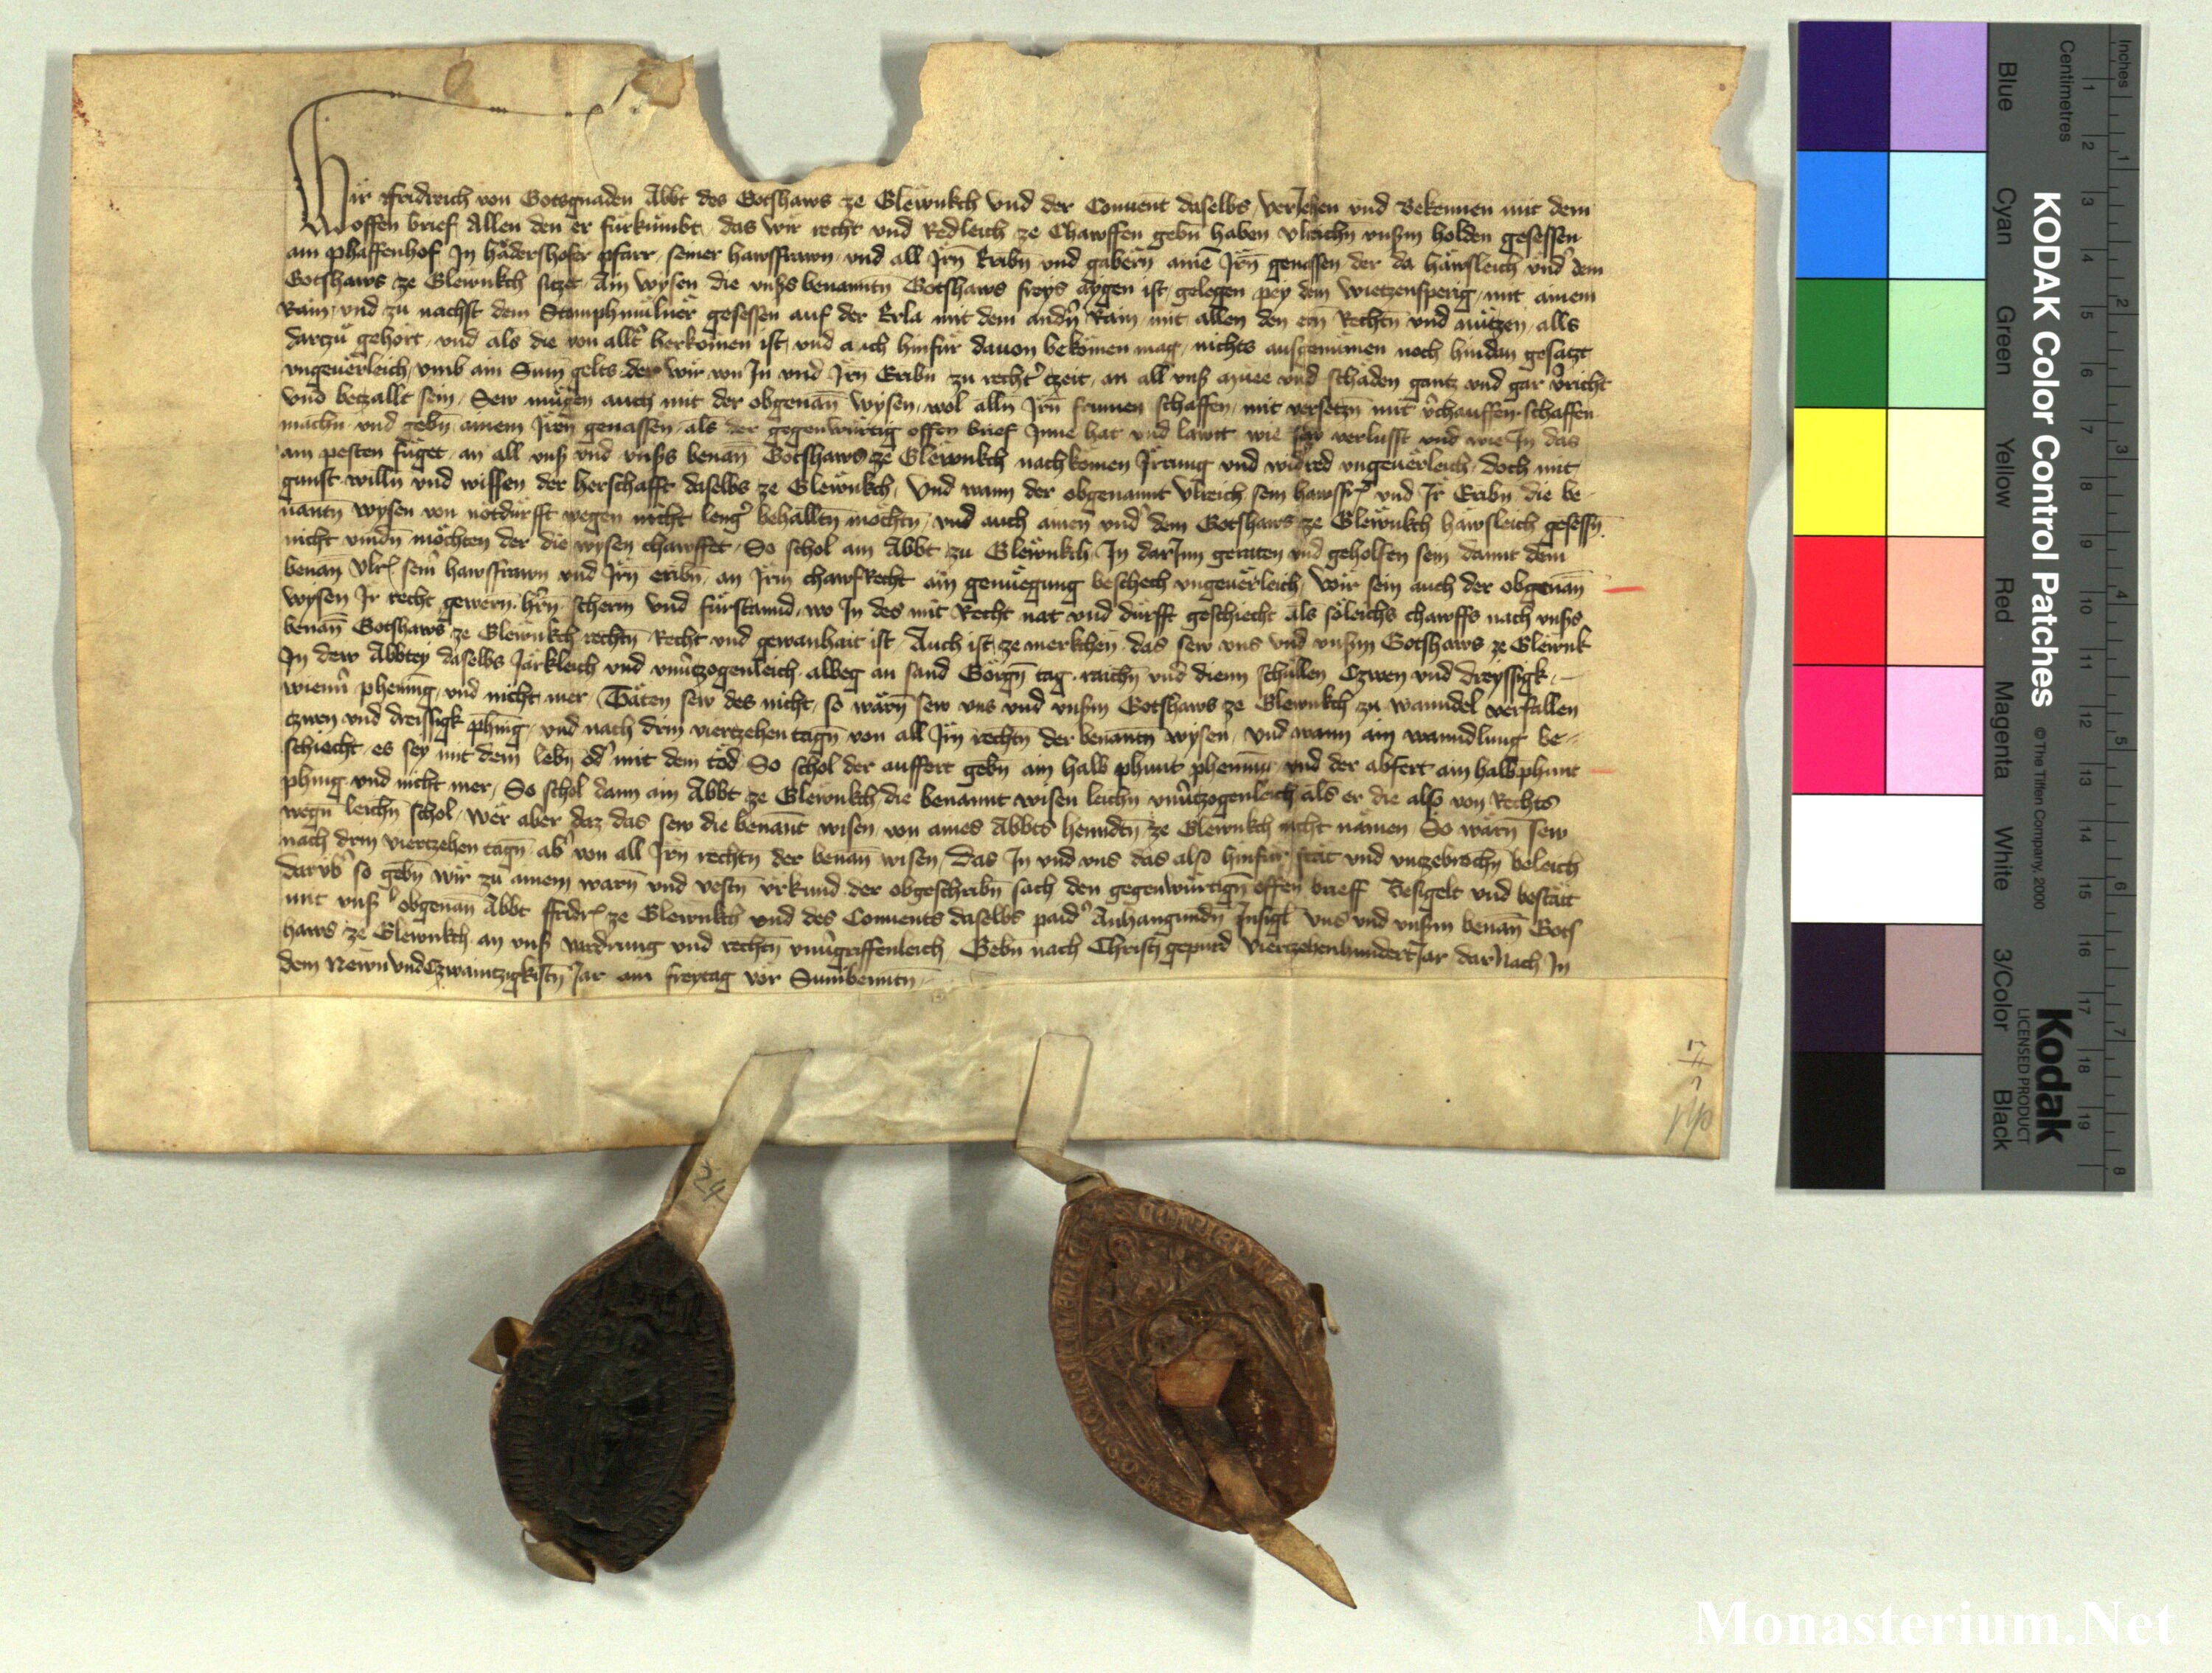 Wir Fridreich von Gotsgnaden Abbt des Gotshaws ze Glewnkch und der Conuent daselbs, veriehen und Bekennen mit dem
offen brief Allen den er fürkümbt, das wir recht und Redleich ze Chawffen gebn haben Vlreichn unserm holden gesessen
am Phaffenhof In hádershofer pfarr, seiner hawsfrawn und all Irn Eribn und gábern ainē Irn genassen der da háwsleich und dem
Gotshaws ze Glewnkch sitzet, Ain wysen die vnsers benanntn Gotshaws freys aygen ist, gelegen pey dem wietzensperig, mit ainem
Rain, und zu nachst dem Stamphmülner gesessen auf der Erla mit dem andern Rain, mit allen den ern Rechtn und nützen, alls
dartzü gehört, und als die von allter herkömen ist, und auch hinfür dauon bekömen mag, nichts ausgenümen noch hindan gesatzt
ungeuërleich, umb ain Sum gelts der wir von In und Irn Eribn zu rechter tzeit, an all vns müee und schäden gantz und gar vericht
und betzallt sein, Sew mügen auch mit der obgenan wysen, wol alln Irn frumen schaffen, mit versetzn mit verchauffen schaffen
machn und gebn ainem Irn genassen, als der gegenwürtig offen brief Inne hat und lawtt wie sew verlusst und wie In das
am pesten füget, an all vnser und vnsers benan Gotshaws ze Glewnkch nachkomen Irrung und widerred ungeuërleich, doch mit
gunst willn und wissen der herschafft daselbs ze Glewnkch, Und wann der obgenannt Vlreich sein hawsfr und Ir Eribn die be-
nantn wysen von notdurfft wegen nicht lenger behalltn möchtn, und auch ainen under dem Gotshaws ze Glewnkch háwsleich gesessn
nicht vindn möchten der die wysen chawffet, So schol ain Abbt zu Glewnkch In darInn geraten und geholfen sein damit dem
benan Vlr seiner hawsfrawn und Irn eribn, an Irm chawfRecht ain genüegung beschech ungeuërleich, Wir sein auch der obgenan
wysen Ir recht gewern, herrn scherm und fürstannd, wo In des mit Recht nat und dürfft geschiecht als söleichs chawffs nach vnsers
benan Gotshaws ze Glewnkch rechtn Recht und gewanhait ist, Auch ist ze merkchen, das sew uns und vnserm Gotshaws ze Glewnk
In dew Abbtey daselbs Järkleich und vnuertzogenleich, albeg an sand Görgn tag raichn und dienn schüllen Czwen und dreyssigk
wienner phening, und nicht mer, Täten sew des nicht, so wärn sew uns und vnserm Gotshaws ze Glewnkch zu wanndel verfallen
tzwen und dreissigk phing, und nach drin viertzehen tagn von all Irn rechtn der benantn wysen, Und wann ain wanndlung be-
schiecht, es sey mit dem lebn oder mit dem töd So schol der auffert gebn ain halb phunt phenning und der abfert ain halb phunt
phing und nicht mer, So schol dann ain Abbt ze Glewnkch die benannt wisen leichn vnuertzogenleich als er die also von Rechts
wegn leichn schol, wer aber daz das sew die benant wisen, von aines Abbts henndtn ze Glewnkch nicht nämen So wärn sew
nach drin viertzehen tagn aber von all Irn rechtn der benan wisen, Das In und uns das also hinfür stät und unzebrochn beleich
darüber so gebn wir zu ainem warn und vestn urkund der obgeschribn sach den gegenwürtign offen brieff Besigelt und bestätt
mit vnser obgenan Abbt ffridr ze Glewnkch und des Conuents daselbs paider Anhangundn Insigl uns und vnserm benan Gots
haws ze Glewnkch an vnser vadrung und rechtn vnuergriffenleich Gebn nach Christi gepurd viertzehenhundert Iar darnach In
dem Newn und Czwaintzigkistn Jar am freytag vor Sunibenntn
24
KODAK Color Control Patches © The Tiffen Company, 2000
Kodak
LICENSED PRODUCT
Inches 1 2 3 4 5 6 7 8
Centimetres 1 2 3 4 5 6 7 8 9 10 11 12 13 14 15 16 17 18 19
Blue Cyan Green Yellow Red Magenta White 3/Color Black
Monasterium.Net